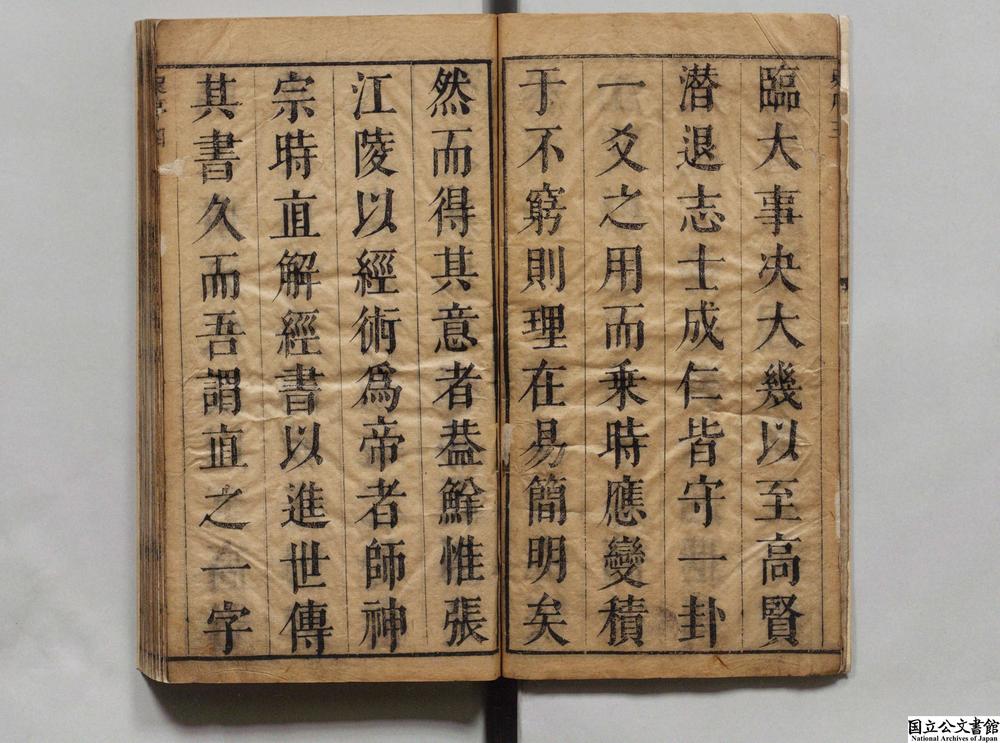 臨大事决大幾以至高賢
潛退志士成仁皆守一卦
一爻之用而乗時應變積
于不窮則理在易簡明矣
然而得其意者葢鮮惟張
江陵以經術爲帝者師神
宗時直解經書以進世傳
其書久而吾謂直之一字
国立公文書館
National Archives of Japan